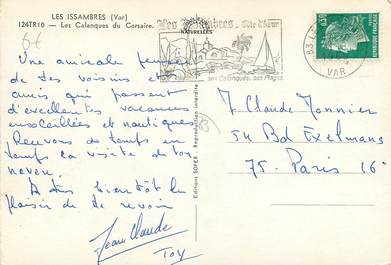 LES ISSAMBRES (Var)
124TR10 — Les Calanques du Corsaire.
6€
Les Issambres. Côte d'Azur
NATURELLES
ses Calanques, ses Plages
83
VAR
REPUBLIQUE FRANÇAISE
Une amicale pensée
de tes voisins et
amis qui passent
d'excellentes vacances
ensoleillées et nautiques
Recevons de temps en
temps la visite de ton
neveu.
A très bientôt le
plaisir de te revoir
Jean Claude
Toy
Editions SOFER - Reproduction interdite
83
M Claude Monnier
54 Bd Exelmans
75. Paris 16e